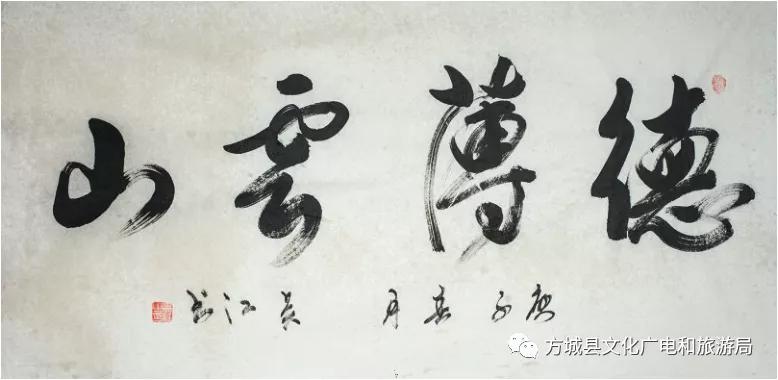 德薄雲山
庚子春月 吴江书
方城县文化广电和旅游局